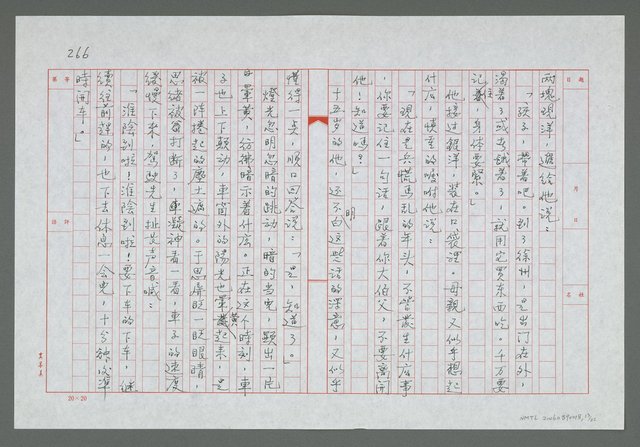 266
兩塊現洋，遞給他說：
「孩子，帶著吧。到了徐州，是出門在外，
渴著了或者餓著了，就用它買東西吃。千萬要
記住，身体要緊。」
他接过銀洋，裝在口袋裡。母親又似乎想起
什庅，慎重的囑咐他說：
「現在是兵慌馬亂的年头，不管發生什庅事
，你要記住一句話，跟著你大伯父，不要离開
他！知道嗎？」
十五岁的他，还不明白这些话的深意，又似乎
懂得一点，順口回答說：「是，知道了。」
燈光忽明忽暗的跳动，暗的当兒，顯出一片
昏黃，彷彿暗示著什庅。正在这个時刻，車
子也上下顛动，車窗外的陽光也昏黃起來，是
被一阵捲起的塵土遮的。于思聲眨一眨眼睛，
思绪被笛打斷了，車凝神看一看，車子的速度
緩慢下來，駕駛先生扯長声音喊：
「淮陰到啦！淮陰到啦！要下車的下車，继
續往前趕的，也下去休息一会兒，十分鈡以準
時開車。」
題目
日
月
姓名
等第
評語
20×20
NMTL